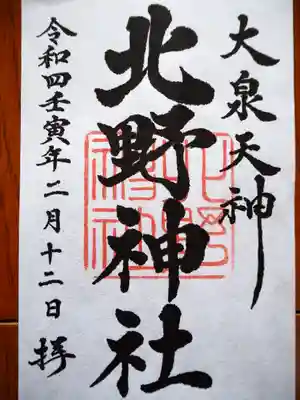 大泉天神
北野神社
令和四壬寅年二月十二日 拝
北野神社